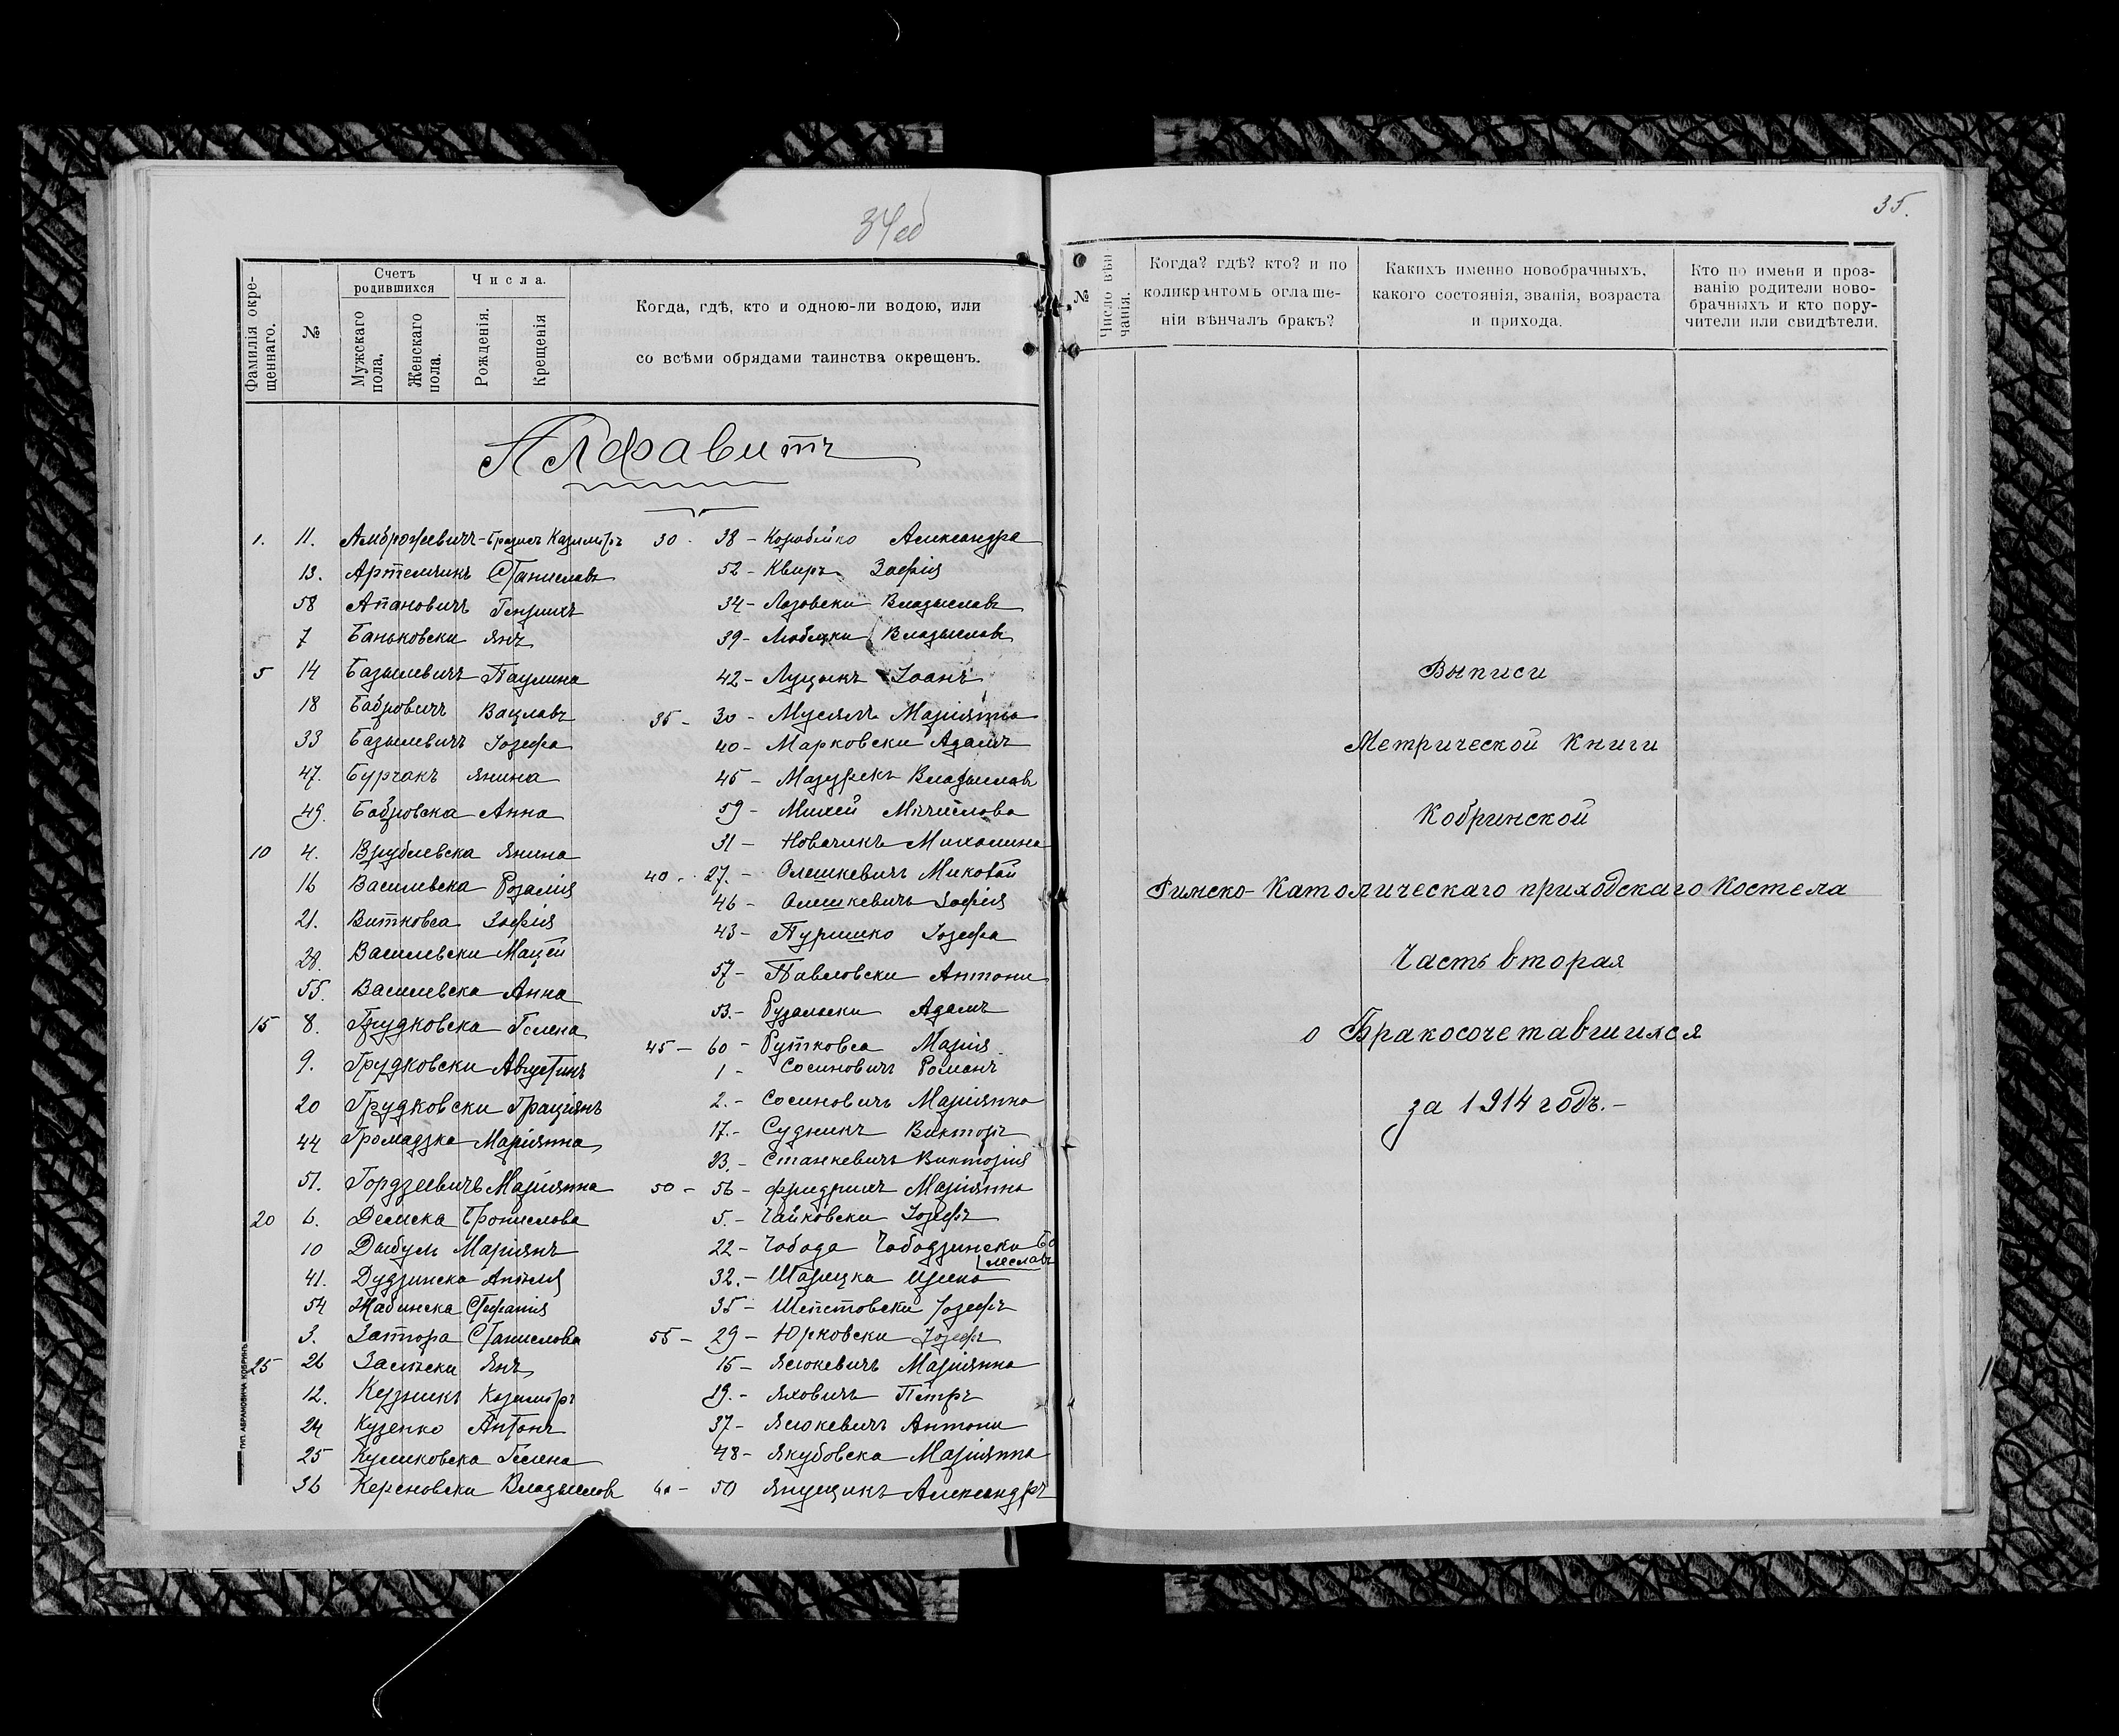 34об
Фамилія окрещеннаго.
№
Счетъ родившихся
Мужскаго пола.
Женскаго пола.
Числа.
Рожденія.
Крещенія
Когда, гдѣ, кто и одною-ли водою, или
со всѣми обрядами таинства окрещенъ.
Алфавитъ
1. 11. Амброжевичъ- Казимѣръ
13. Артемчикъ Станиславъ
58 Апановичъ Генрихъ
7 Баньковски Янъ
5 14 Базылевичъ Паулина
18 Бобровичъ Вацлавъ
33 Базылевичъ Іозефа
47. Бурчакъ Янина
49. Бобровска Анна
10 4. Врублевска Янина
16 Василевска Розалія
21. Витковса Зофія
28. Василевски Мацей
55. Василевска Анна
15 8. Грудковска Гелена
9. Грудковски Августинъ
20 Грудковски Граціянъ
44 Громадзка Маріянна
51. Гордзеевичъ Маріянна
20 6. Демска Бронислава
10 Дыбулъ Маріянъ
41. Дудзинска Анеля
54 Жабинска Стефанія
3. Затора Станислава
25 26 Залѣски Янъ
12. Кузникъ Казимѣръ
24 Кузенко Антонъ
25 Куликовска Гелена
36 Керсновски Владыславъ
30 - 38 - Коробейко Александра
52 - Квиръ Зофія
34 - Лазовски Владыславъ
39 - Любецки Владыславъ
42 - Луцыкъ Іоанъ
35 - 30 - Мусялъ Маріянна
40 - Марковски Адамъ
45 - Мазурекъ Владыславъ
59 - Михей Мѣчислава
31 - Новачикъ Михалина
40 - 27. - Олешкевичъ Миколай
46 - Олешкевичъ Зофія
43 - Пуришко Іозефа
57 - Павловски Антони
53. - Рузальски Адамъ
45 - 60 - Рутковса Марія
1 - Сосиновичъ Романъ
2. - Сосиновичъ Маріянна
17. - Судникъ Викторъ
23. - Станкевичъ Викторія
50 - 56 - Фридрихъ Маріянна
5. - Чайковски Іозефъ
22 - Чобода Чободзински Бо
леславъ
32. - Шарецка Ирена
35 - Шепетовски Іозефъ
55 - 29 - Юрковски Іозефъ
15 - Ясюкевичъ Маріянна
19. - Яховичъ Петръ
37 - Ясюкевичъ Антони
48 - Якубовска Маріянна
60 - 50 Янущикъ Александръ
ТИП. АБРАМОВИЧА КОБРИНЪ
35.
№
Число вѣнчанія.
Когда? гдѣ? кто? и по
коликрантомъ оглаше-
ніи вѣнчалъ бракъ?
Какихъ именно новобрачныхъ,
какого состоянія, званія, возраста
и прихода.
Кто по имени и проз-
ванію родители ново-
брачныхъ и кто пору-
чители или свидѣтели.
Выписи
Метрической Книги
Кобринской
Римско-Католическаго приходскаго Костела
Часть вторая
о Бракосочетавшихся
за 1914 годъ.-